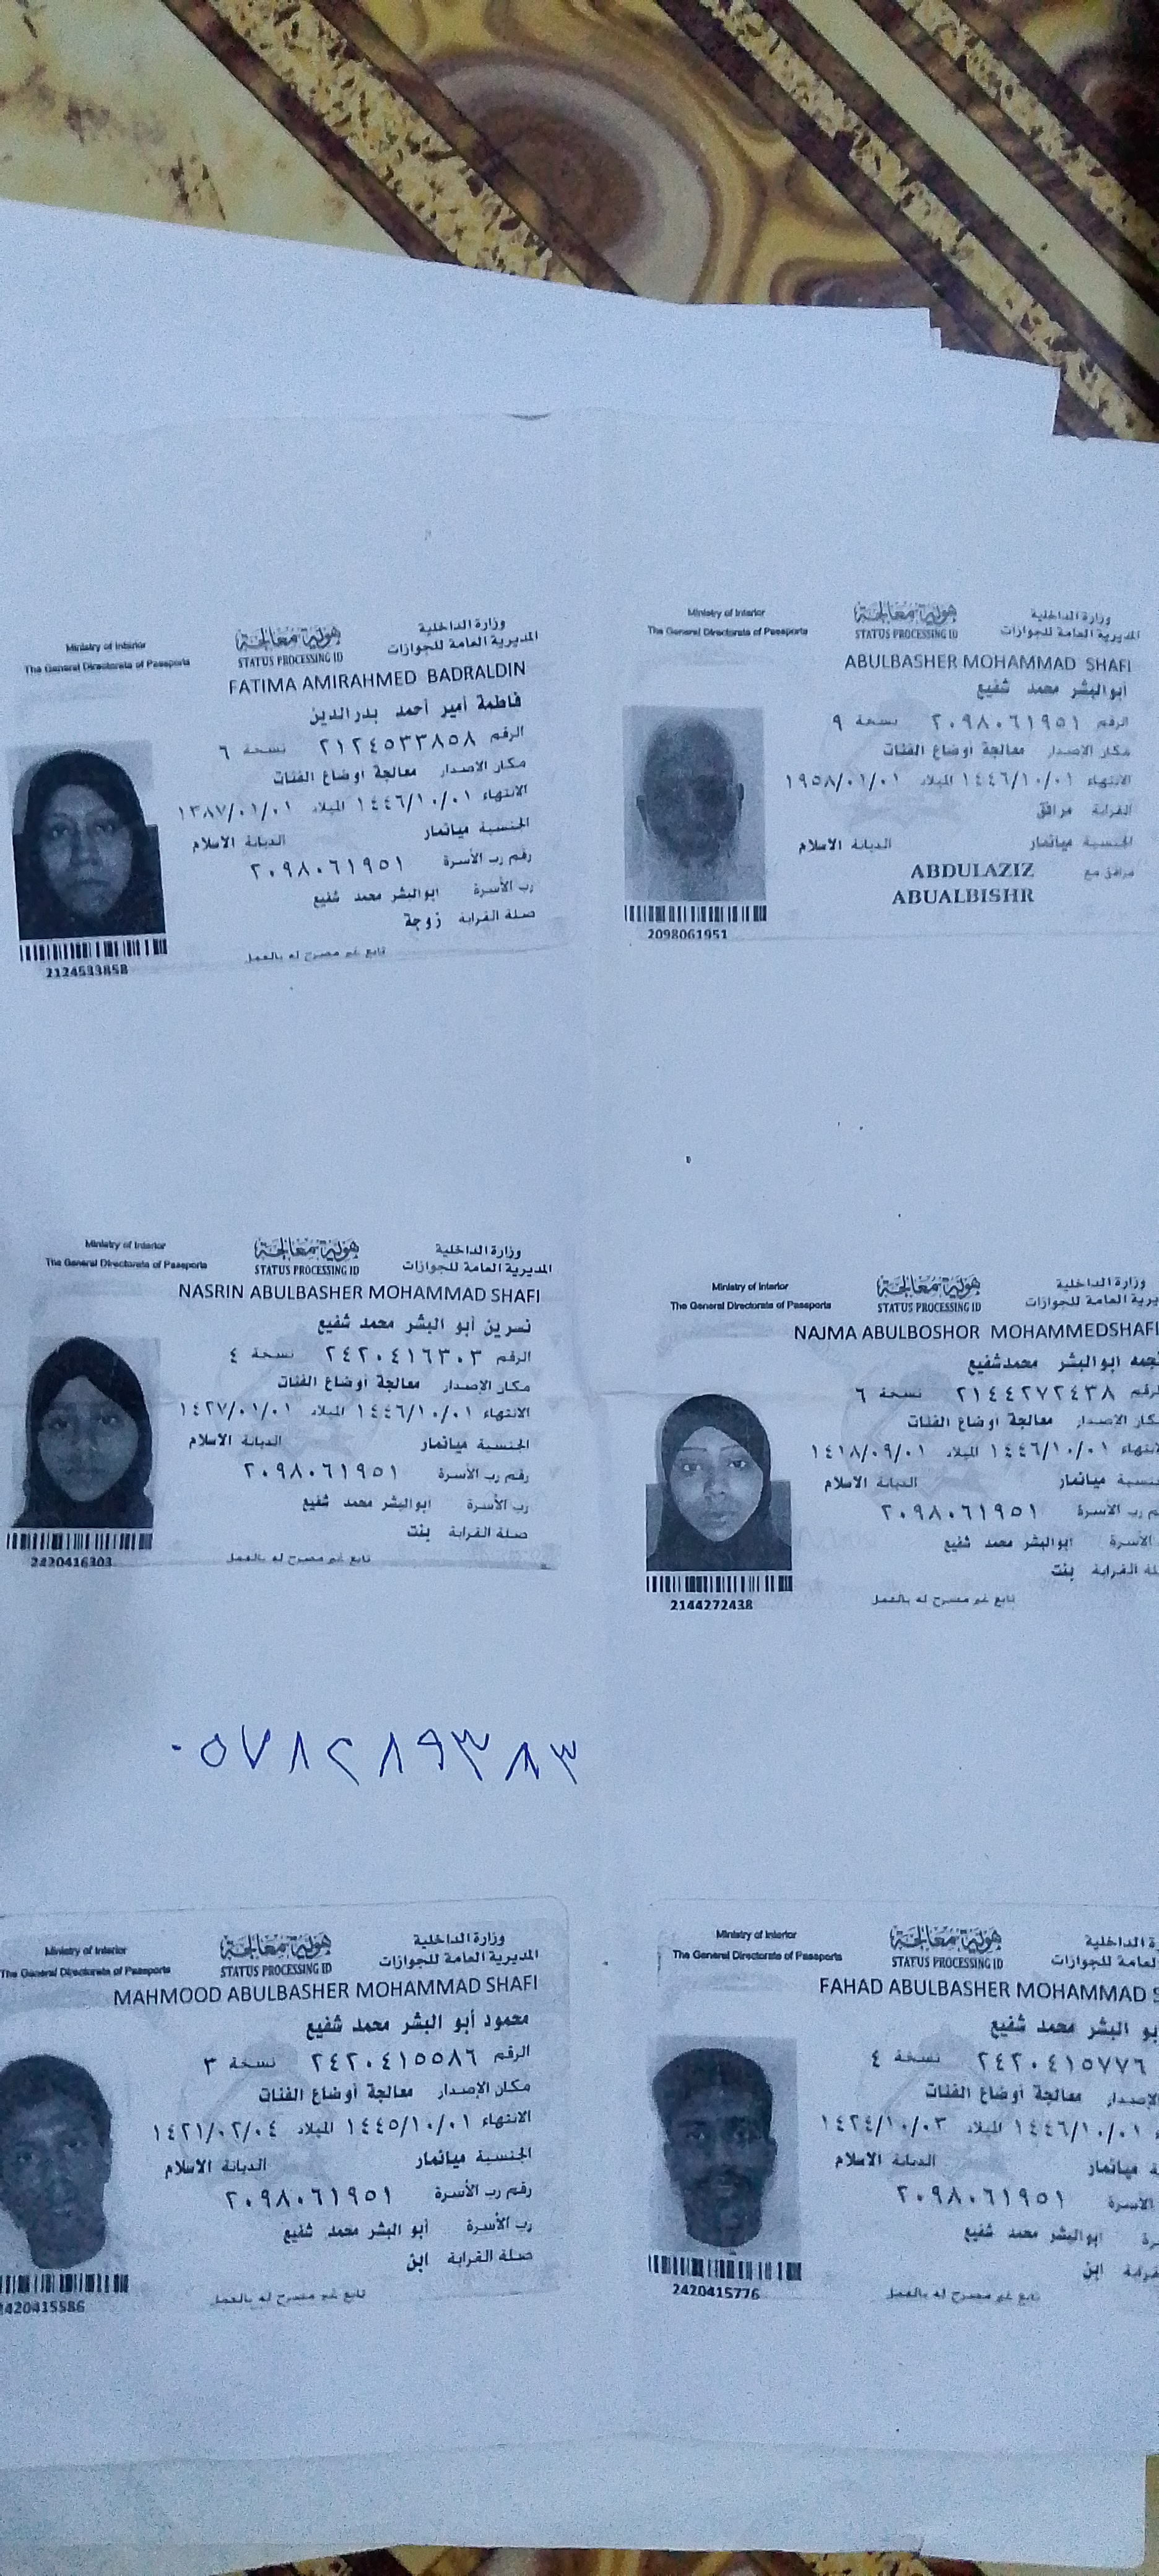 Ministry of Interior
The General Directorate of Passports
هوية معالجة
STATUS PROCESSING ID
وزارة الداخلية
المديرية العامة للجوازات
FATIMA AMIRAHMED BADRALDIN
فاطمة أمير أحمد بدرالدين
الرقم ٢١٢٤٥٣٣٨٥٨ نسخة ٦
مكان الإصدار معالجة أوضاع الفئات
الانتهاء ١٤٤٦/١٠/٠١ الميلاد ١٣٨٧/٠١/٠١
الجنسية ميانمار الديانة الاسلام
رقم رب الأسرة ٢٠٩٨٠٦١٩٥١
رب الأسرة ابوالبشر محمد شفيع
صلة القرابة زوجة
تابع غير مصرح له بالعمل
2124533858
Ministry of Interior
The General Directorate of Passports
هوية معالجة
STATUS PROCESSING ID
وزارة الداخلية
المديرية العامة للجوازات
ABULBASHER MOHAMMAD SHAFI
ابوالبشر محمد شفيع
الرقم ٢٠٩٨٠٦١٩٥١ نسخة ٩
مكان الإصدار معالجة أوضاع الفئات
الانتهاء ١٤٤٦/١٠/٠١ الميلاد ١٩٥٨/٠١/٠١
القرابة مرافق
الجنسية ميانمار الديانة الاسلام
مرافق مع ABDULAZIZ
ABUALBISHR
2098061951
Ministry of Interior
The General Directorate of Passports
هوية معالجة
STATUS PROCESSING ID
وزارة الداخلية
المديرية العامة للجوازات
NASRIN ABULBASHER MOHAMMAD SHAFI
نسرين أبو البشر محمد شفيع
الرقم ٢٤٢٠٤١٦٣٠٣ نسخة ٤
مكان الإصدار معالجة أوضاع الفئات
الانتهاء ١٤٤٦/١٠/٠١ الميلاد ١٤٢٧/٠١/٠١
الجنسية ميانمار الديانة الاسلام
رقم رب الأسرة ٢٠٩٨٠٦١٩٥١
رب الأسرة ابوالبشر محمد شفيع
صلة القرابة بنت
تابع غير مصرح له بالعمل
2420416303
Ministry of Interior
The General Directorate of Passports
هوية معالجة
STATUS PROCESSING ID
وزارة الداخلية
العامة للجوازات
NAJMA ABULBOSHOR MOHAMMEDSHAFI
نجمه ابوالبشر محمدشفيع
الرقم ٢١٤٤٢٧٢٤٣٨ نسخة ٦
الإصدار معالجة أوضاع الفئات
الانتهاء ١٤٤٦/١٠/٠١ الميلاد ١٤١٨/٠٩/٠١
ميانمار الديانة الاسلام
رب الأسرة ٢٠٩٨٠٦١٩٥١
الأسرة ابوالبشر محمد شفيع
القرابة بنت
تابع غير مصرح له بالعمل
2144272438
٠٥٧٨٢٨٩٣٨٣
Ministry of Interior
The General Directorate of Passports
هوية معالجة
STATUS PROCESSING ID
وزارة الداخلية
المديرية العامة للجوازات
MAHMOOD ABULBASHER MOHAMMAD SHAFI
محمود أبو البشر محمد شفيع
الرقم ٢٤٢٠٤١٥٥٨٦ نسخة ٣
مكان الإصدار معالجة أوضاع الفئات
الانتهاء ١٤٤٥/١٠/٠١ الميلاد ١٤٢١/٠٢/٠٤
الجنسية ميانمار الديانة الاسلام
رقم رب الأسرة ٢٠٩٨٠٦١٩٥١
رب الأسرة أبو البشر محمد شفيع
صلة القرابة ابن
تابع غير مصرح له بالعمل
2420415586
Ministry of Interior
The General Directorate of Passports
هوية معالجة
STATUS PROCESSING ID
الداخلية
العامة للجوازات
FAHAD ABULBASHER MOHAMMAD S
البشر محمد شفيع
٢٤٢٠٤١٥٧٧٦ نسخة ٤
الإصدار معالجة أوضاع الفئات
١٤٤٦/١٠/٠١ الميلاد ١٤٢٤/١٠/٠٣
ميانمار الديانة الاسلام
الأسرة ٢٠٩٨٠٦١٩٥١
ابوالبشر محمد شفيع
ابن
تابع غير مصرح له بالعمل
2420415776